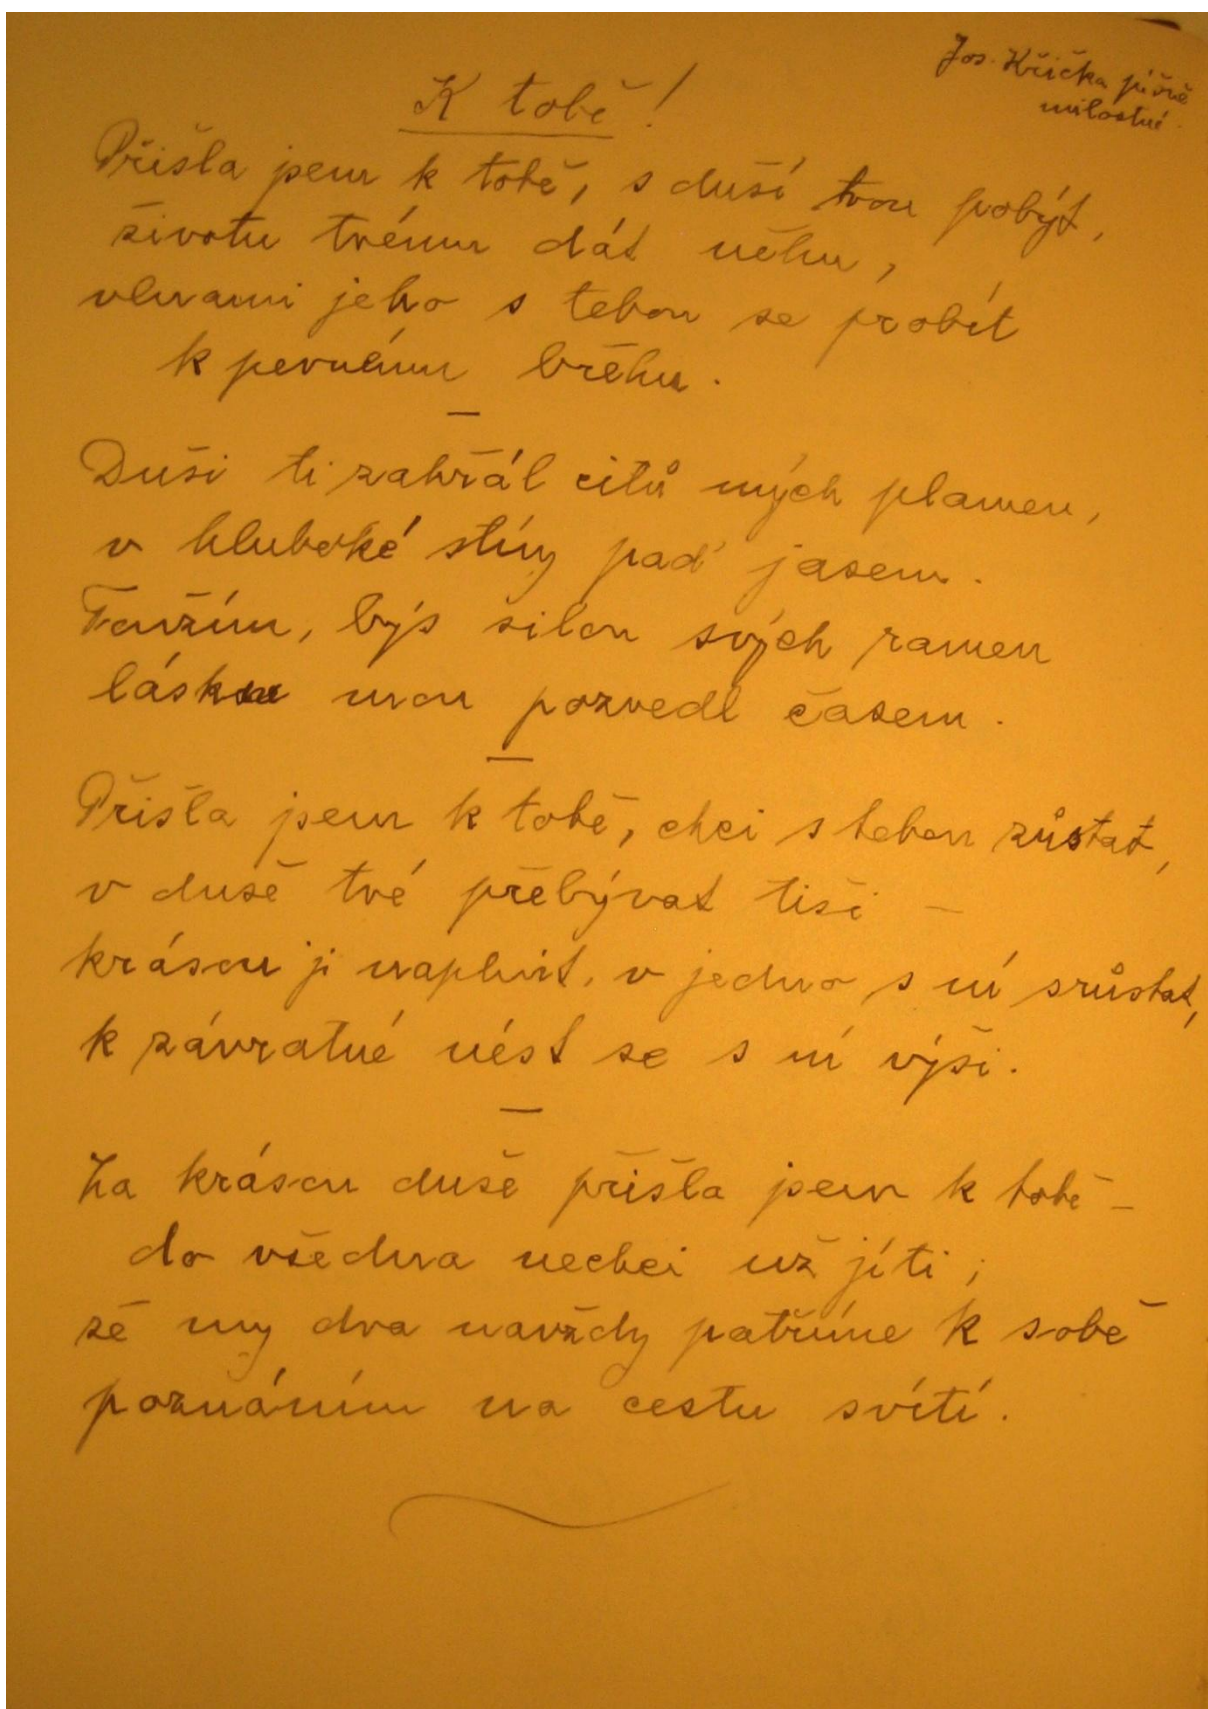 Jos. Křička písně
milostné.
K tobě!
Přišla jsem k tobě, s duší tvou pobýt,
životu tvému dát něhu,
vlnami jeho s tebou se probít
k pevnému břehu.
—
Duši ti zahřál citů mých plamen,
v hluboké stíny pad' jasem.
Toužím, bys silou svých ramen
lásku mou pozvedl časem.
—
Přišla jsem k tobě, chci s tebou zůstat,
v duše tvé přebývat tiši –
krásou ji naplnit, v jedno s ní srůstat,
k závratné nést se s ní výši.
—
Za krásou duše přišla jsem k tobě –
do všedna nechci už jíti;
že my dva navždy patříme k sobě
poznáním na cestu svítí.